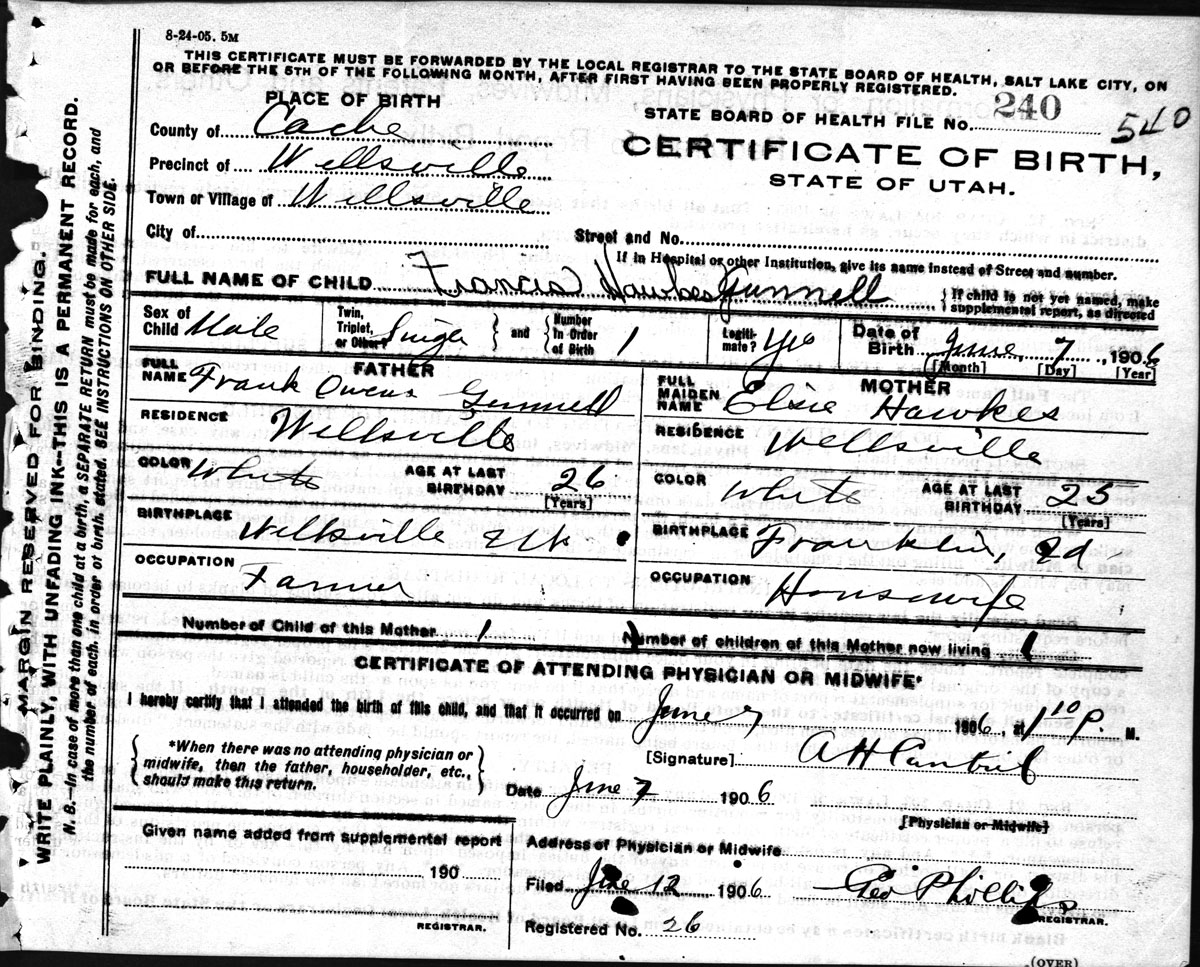 8-24-05. 5M
THIS CERTIFICATE MUST BE FORWARDED BY THE LOCAL REGISTRAR TO THE STATE BOARD OF HEALTH, SALT LAKE CITY, ON
OR BEFORE THE 5TH OF THE FOLLOWING MONTH, AFTER FIRST HAVING BEEN PROPERLY REGISTERED.
PLACE OF BIRTH
STATE BOARD OF HEALTH FILE No. 240 540
County of Cache
CERTIFICATE OF BIRTH,
STATE OF UTAH.
Precinct of Wellsville
Town or Village of Wellsville
City of Street and No.
If in Hospital or other Institution, give its name instead of Street and number.
FULL NAME OF CHILD Francis Hawkes Gunnell {If child is not yet named, make supplemental report, as directed
Sex of Child Male Twin, Triplet, or Other? Single and Number In Order of Birth 1 Legitimate? Yes Date of Birth June 7, 1906
[Month] [Day] [Year]
FATHER
FULL NAME Frank Owens Gunnell
RESIDENCE Wellsville
COLOR White AGE AT LAST BIRTHDAY 26
[Years]
BIRTHPLACE Wellsville
OCCUPATION Farmer
MOTHER
FULL MAIDEN NAME Elsie Hawkes
RESIDENCE Wellsville
COLOR White AGE AT LAST BIRTHDAY 23
[Years]
BIRTHPLACE Franklin, Id
OCCUPATION Housewife
Number of Child of this Mother 1 Number of children of this Mother now living 1
CERTIFICATE OF ATTENDING PHYSICIAN OR MIDWIFE*
I hereby certify that I attended the birth of this child, and that it occurred on June 7 1906, at 1 10 P. M.
{*When there was no attending physician or
midwife, then the father, householder, etc.,
should make this return.}
[Signature] A H
Date June 7 1906
[Physician or Midwife]
Given name added from supplemental report
190
REGISTRAR.
Address of Physician or Midwife
Filed June 12 1906 Geo Phillips
REGISTRAR.
Registered No. 26
(OVER)
MARGIN RESERVED FOR BINDING.
WRITE PLAINLY, WITH UNFADING INK—THIS IS A PERMANENT RECORD.
N. B.—In case of more than one child at a birth, a SEPARATE RETURN must be made for each, and
the number of each, in order of birth, stated. SEE INSTRUCTIONS ON OTHER SIDE.